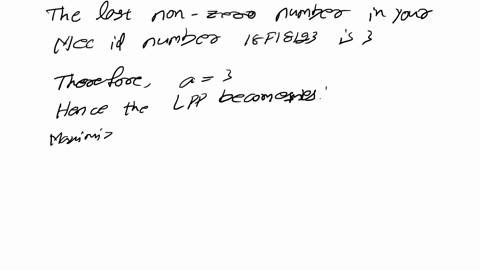 The last non-zero number in your
Mec id number 18F18193 is 3
Therefore, a = 3
Hence the LPP becomes:
Maximiz